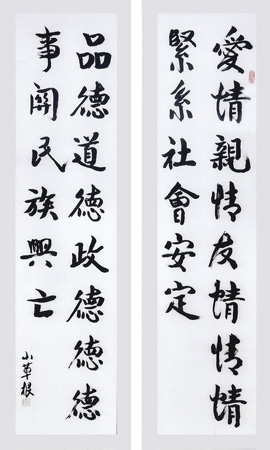 愛情親情友情情情
緊系社會安定
品德道德政德德德
事關民族興亡
小草根